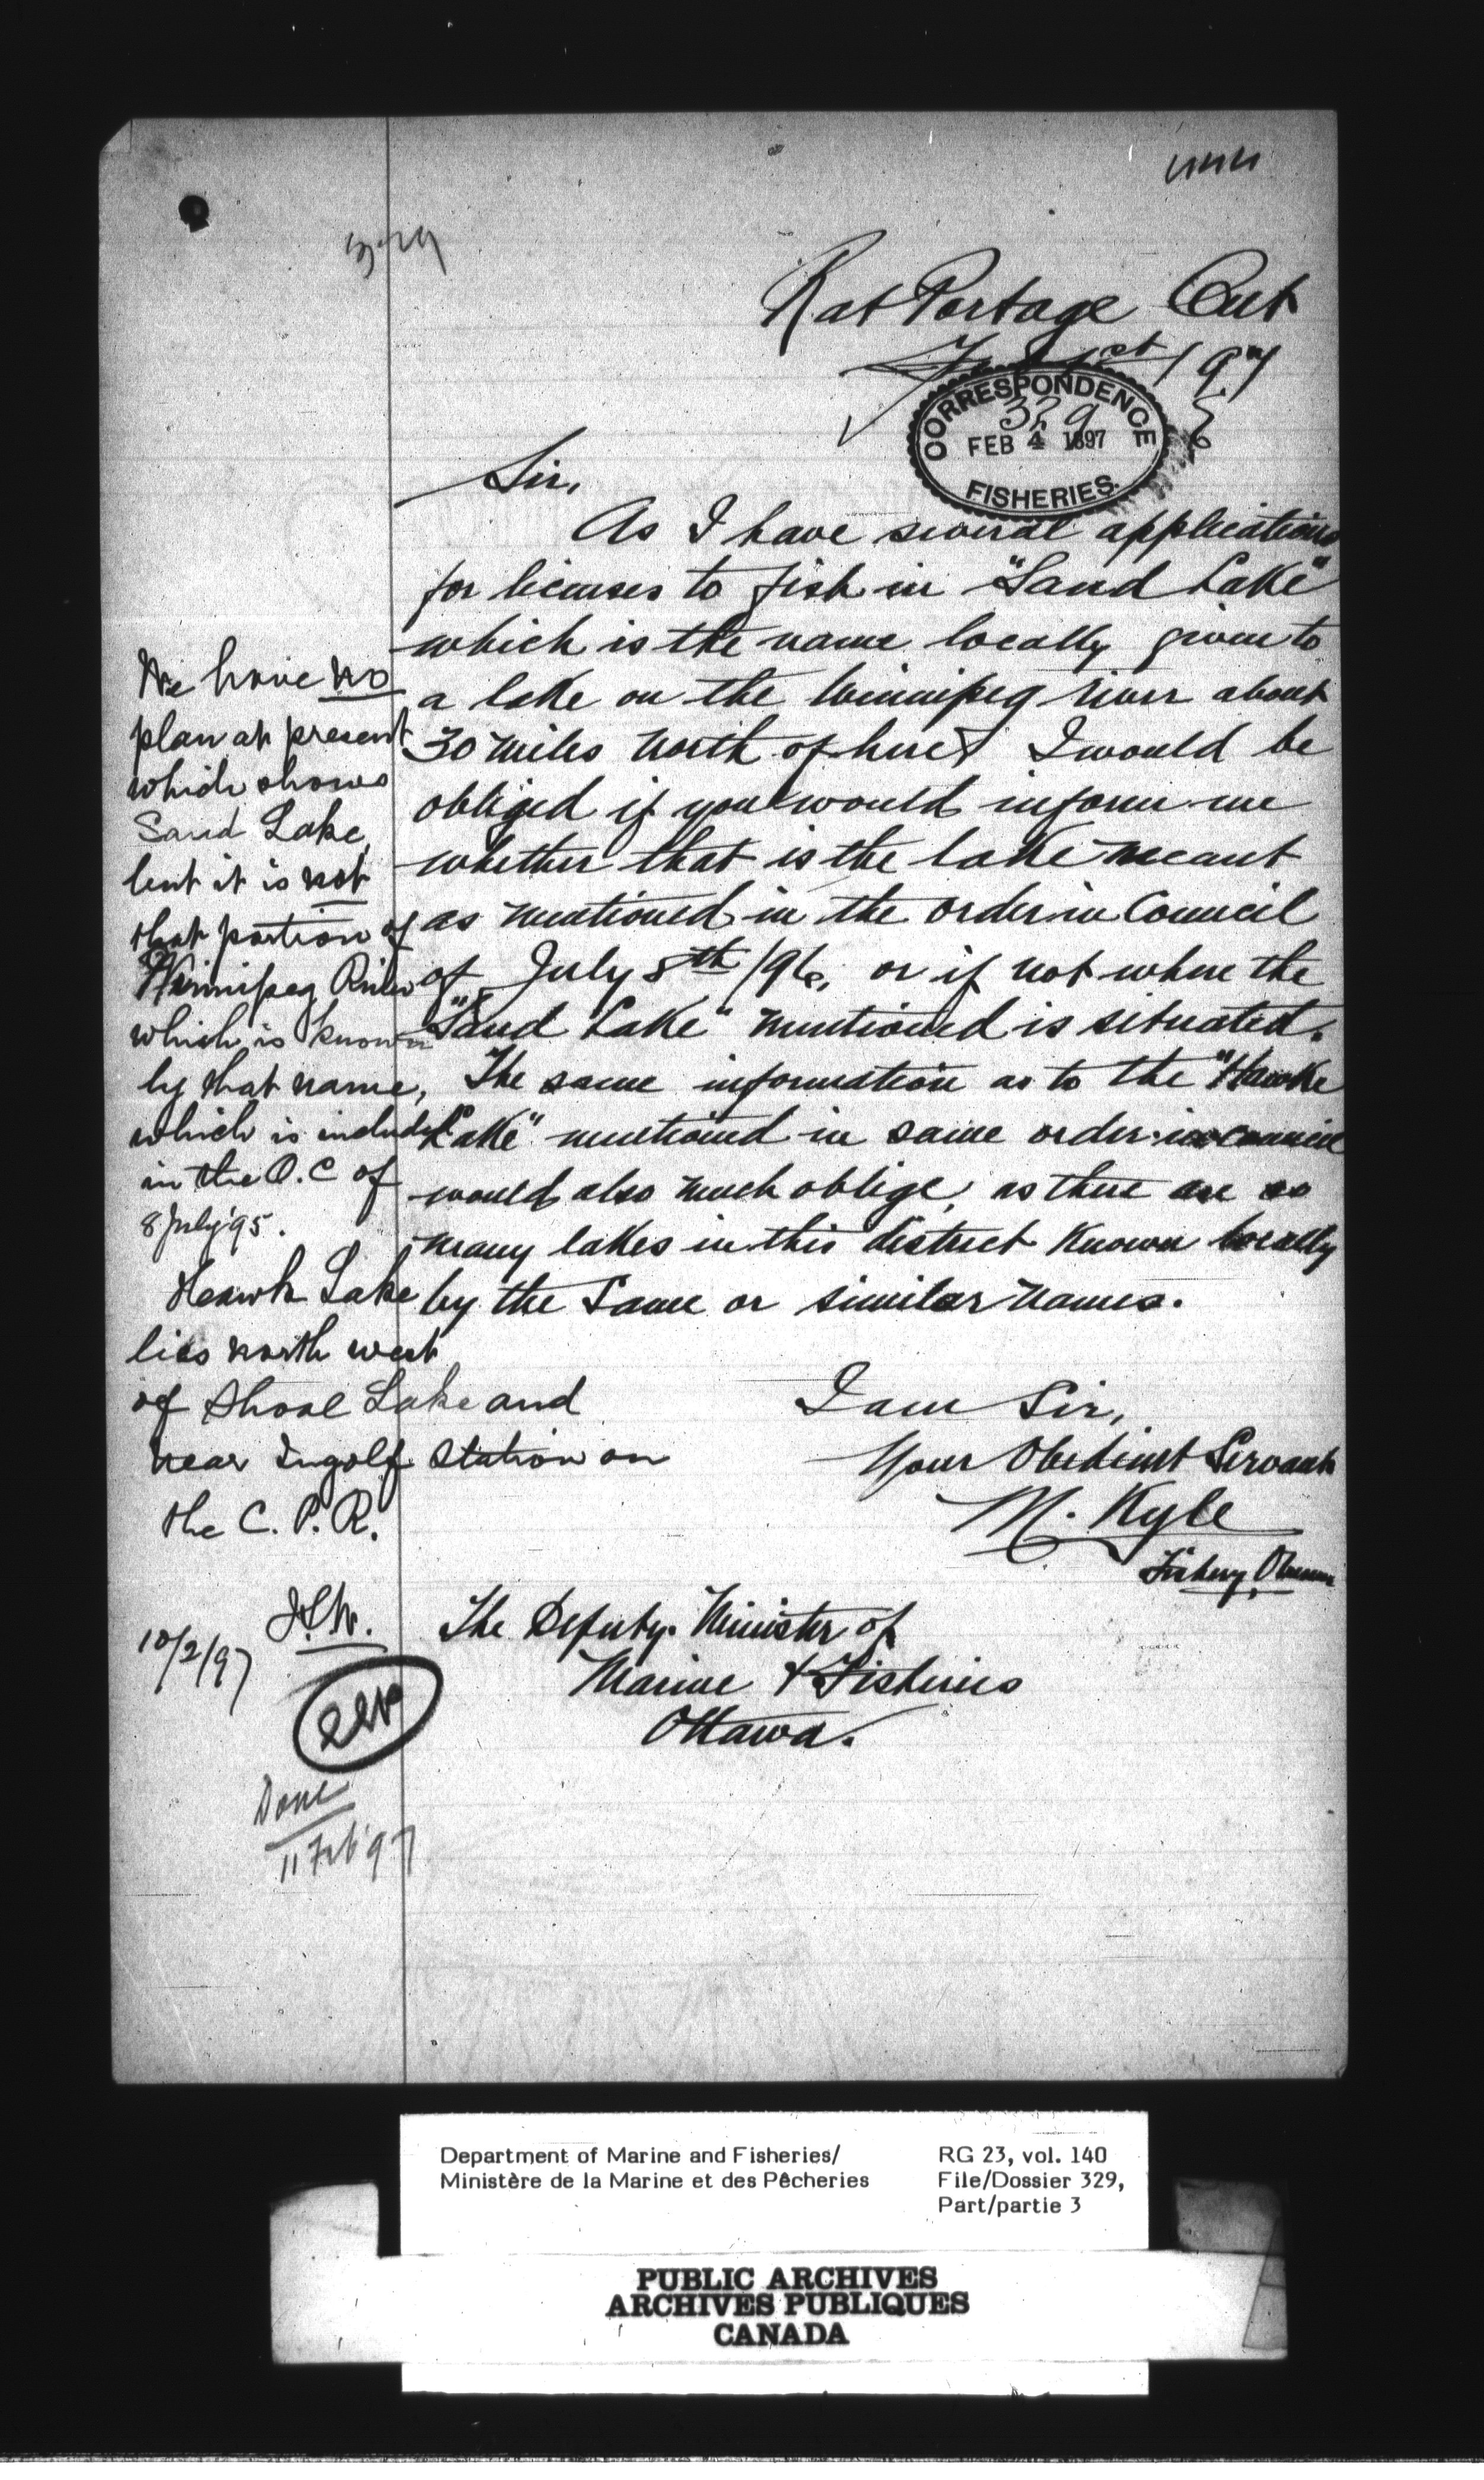 Rat Portage Ont
Feb 1st / 97
CORRESPONDENCE
329
FEB 4 1897
FISHERIES.
Sir,
As I have several applications
for licenses to fish in "Sand Lake"
which is the name locally given to
a lake on the Winnipeg river about
30 miles north of here I would be
obliged if you would inform me
whether that is the lake meant
as mentioned in the order in Council
of July 8th /96, or if not where the
"Sand Lake" mentioned is situated.
The same information as to the "Hawke
Lake" mentioned in same order in council
would also much oblige, as there are so
many lakes in this district known locally
by the same or similar names.
I am Sir,
Your Obedient Servant
M. Kyle
Fishery Overseer
The Deputy Minister of
Marine & Fisheries
Ottawa.
We have no
plan at present
which shows
Sand Lake,
but it is not
that portion of
Winnipeg River
which is known
by that name,
which is included
in the O.C of
8 July '95.
Hawk Lake
lies north west
of Shoal Lake and
near Ingolf Station on
the C. P. R.
10/2/97
Done
11 Feb '97
Department of Marine and Fisheries/
Ministère de la Marine et des Pêcheries
RG 23, vol. 140
File/Dossier 329,
Part/partie 3
PUBLIC ARCHIVES
ARCHIVES PUBLIQUES
CANADA